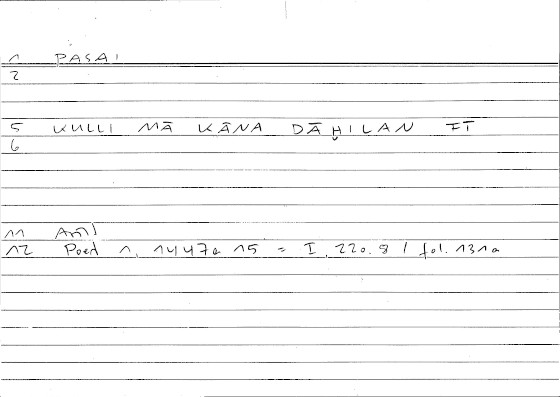 1 PASAI
2
5 KULLI MĀ KĀNA DĀḪILAN FĪ
6
11
12 Poet 1, 1447a 15 = I, 220.8 / fol. 131a